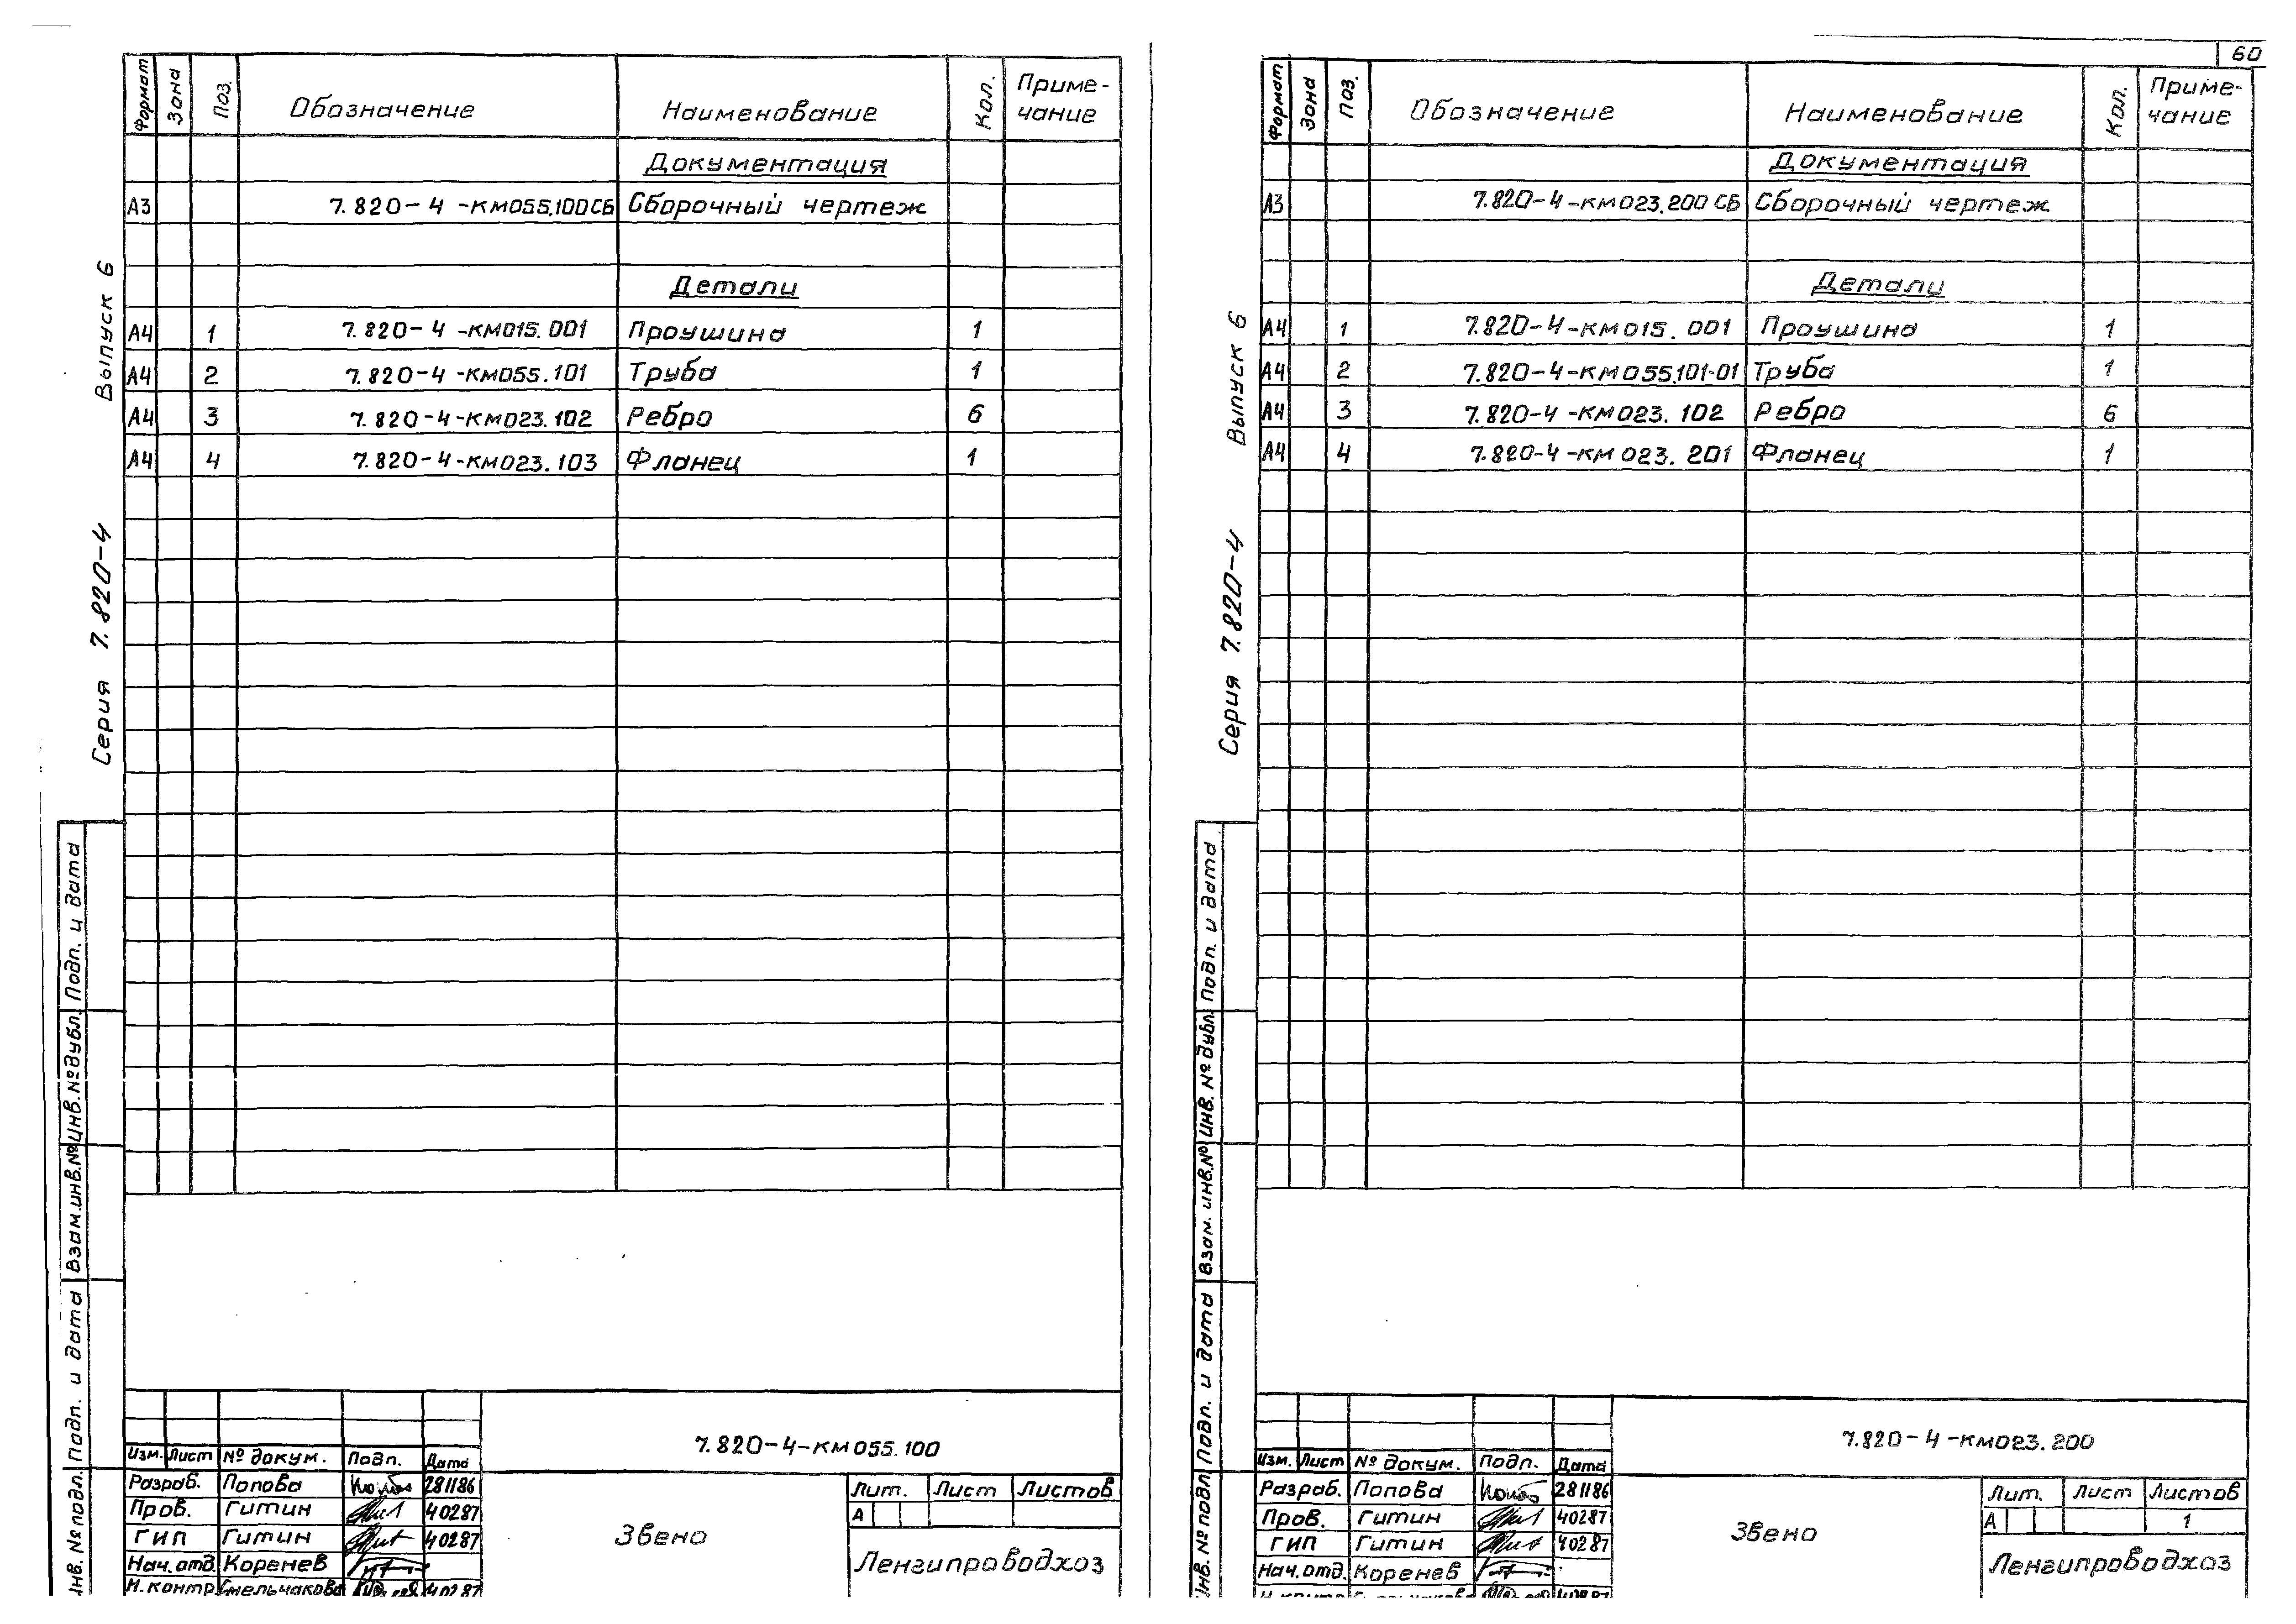 Формат Зона Поз. Обозначение Наименование Кол. Приме-
чание
Документация
А3 7.820-4-КМ055.100СБ Сборочный чертеж
Детали
А4 1 7.820-4-КМ015.001 Проушина 1
А4 2 7.820-4-КМ055.101 Труба 1
А4 3 7.820-4-КМ023.102 Ребро 6
А4 4 7.820-4-КМ023.103 Фланец 1
Серия 7.820-4 Выпуск 6
Инв. № подл. Подп. и дата Взам.инв.№ Инв.№ дубл. Подп. и дата
7.820-4-КМ055.100
Изм. Лист № докум. Подп. Дата
Разраб. Попова 281186
Пров. Гитин 40287
ГИП Гитин 40287
Нач.отд. Коренев
Н.контр. Емельчакова 40287
Звено
Лит. Лист Листов
А
Ленгипроводхоз
60
Формат Зона Поз. Обозначение Наименование Кол. Приме-
чание
Документация
А3 7.820-4-КМ023.200 СБ Сборочный чертеж
Детали
А4 1 7.820-4-КМ015.001 Проушина 1
А4 2 7.820-4-КМ055.101-01 Труба 1
А4 3 7.820-4-КМ023.102 Ребро 6
А4 4 7.820-4-КМ023.201 Фланец 1
Серия 7.820-4 Выпуск 6
Инв. № подл. Подп. и дата Взам. инв.№ Инв. № дубл. Подп. и дата
7.820-4-КМ023.200
Изм. Лист № докум. Подп. Дата
Разраб. Попова 281186
Пров. Гитин 40287
ГИП Гитин 40287
Нач.отд. Коренев
Звено
Лит. Лист Листов
А 1
Ленгипроводхоз